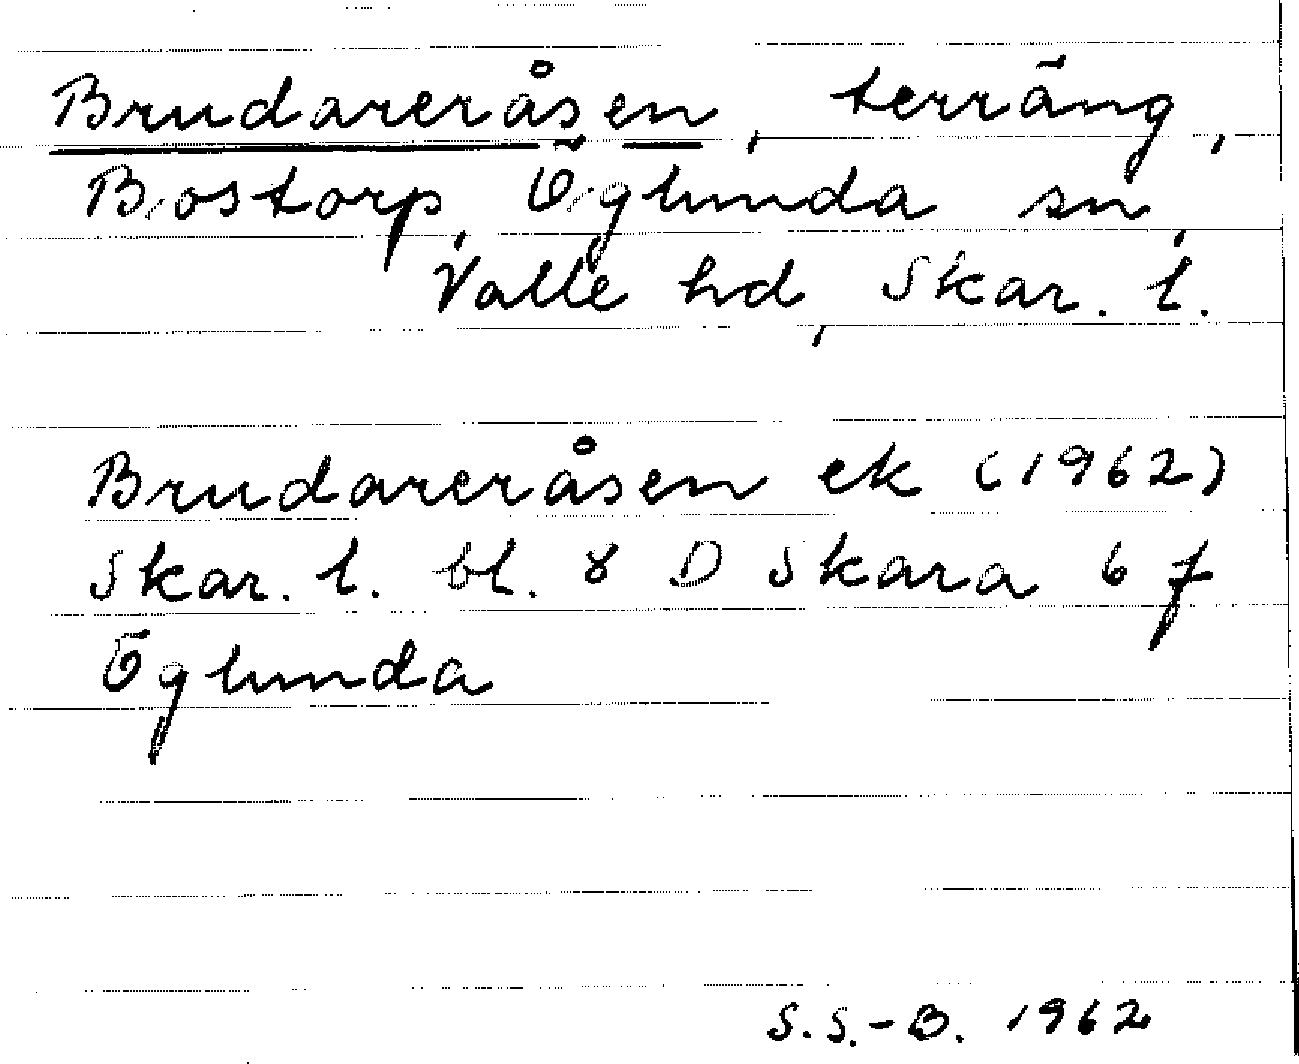 Brudareråsen, terräng,
Bostorp, Öglunda sn,
Valle hd, Skar. l.
Brudareråsen ek (1962)
Skar. l. bl. 8 D Skara 6 f
Öglunda
S.S.-B. 1962